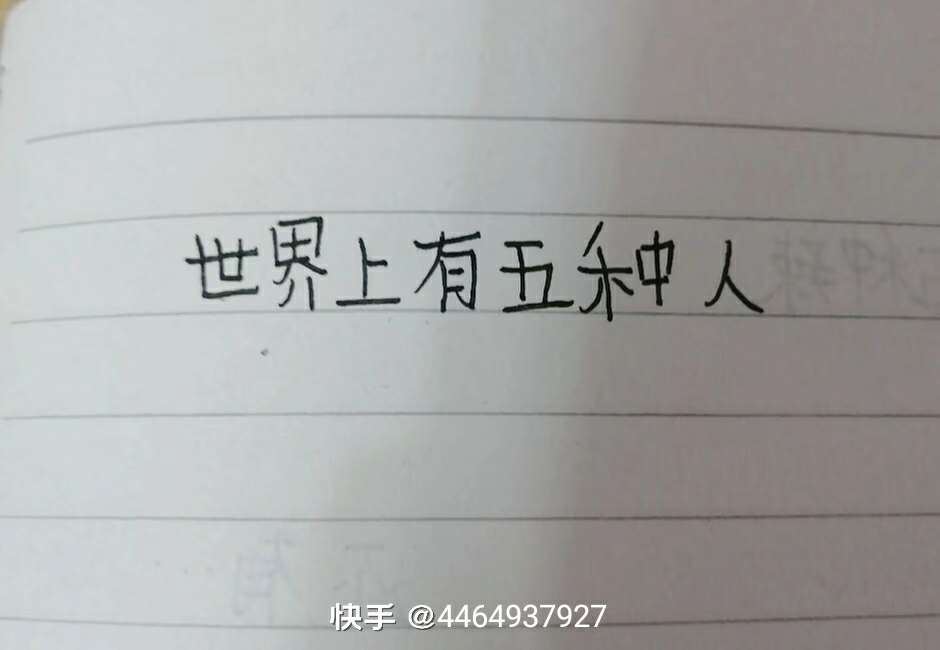 世界上有五种人
快手 @4464937927